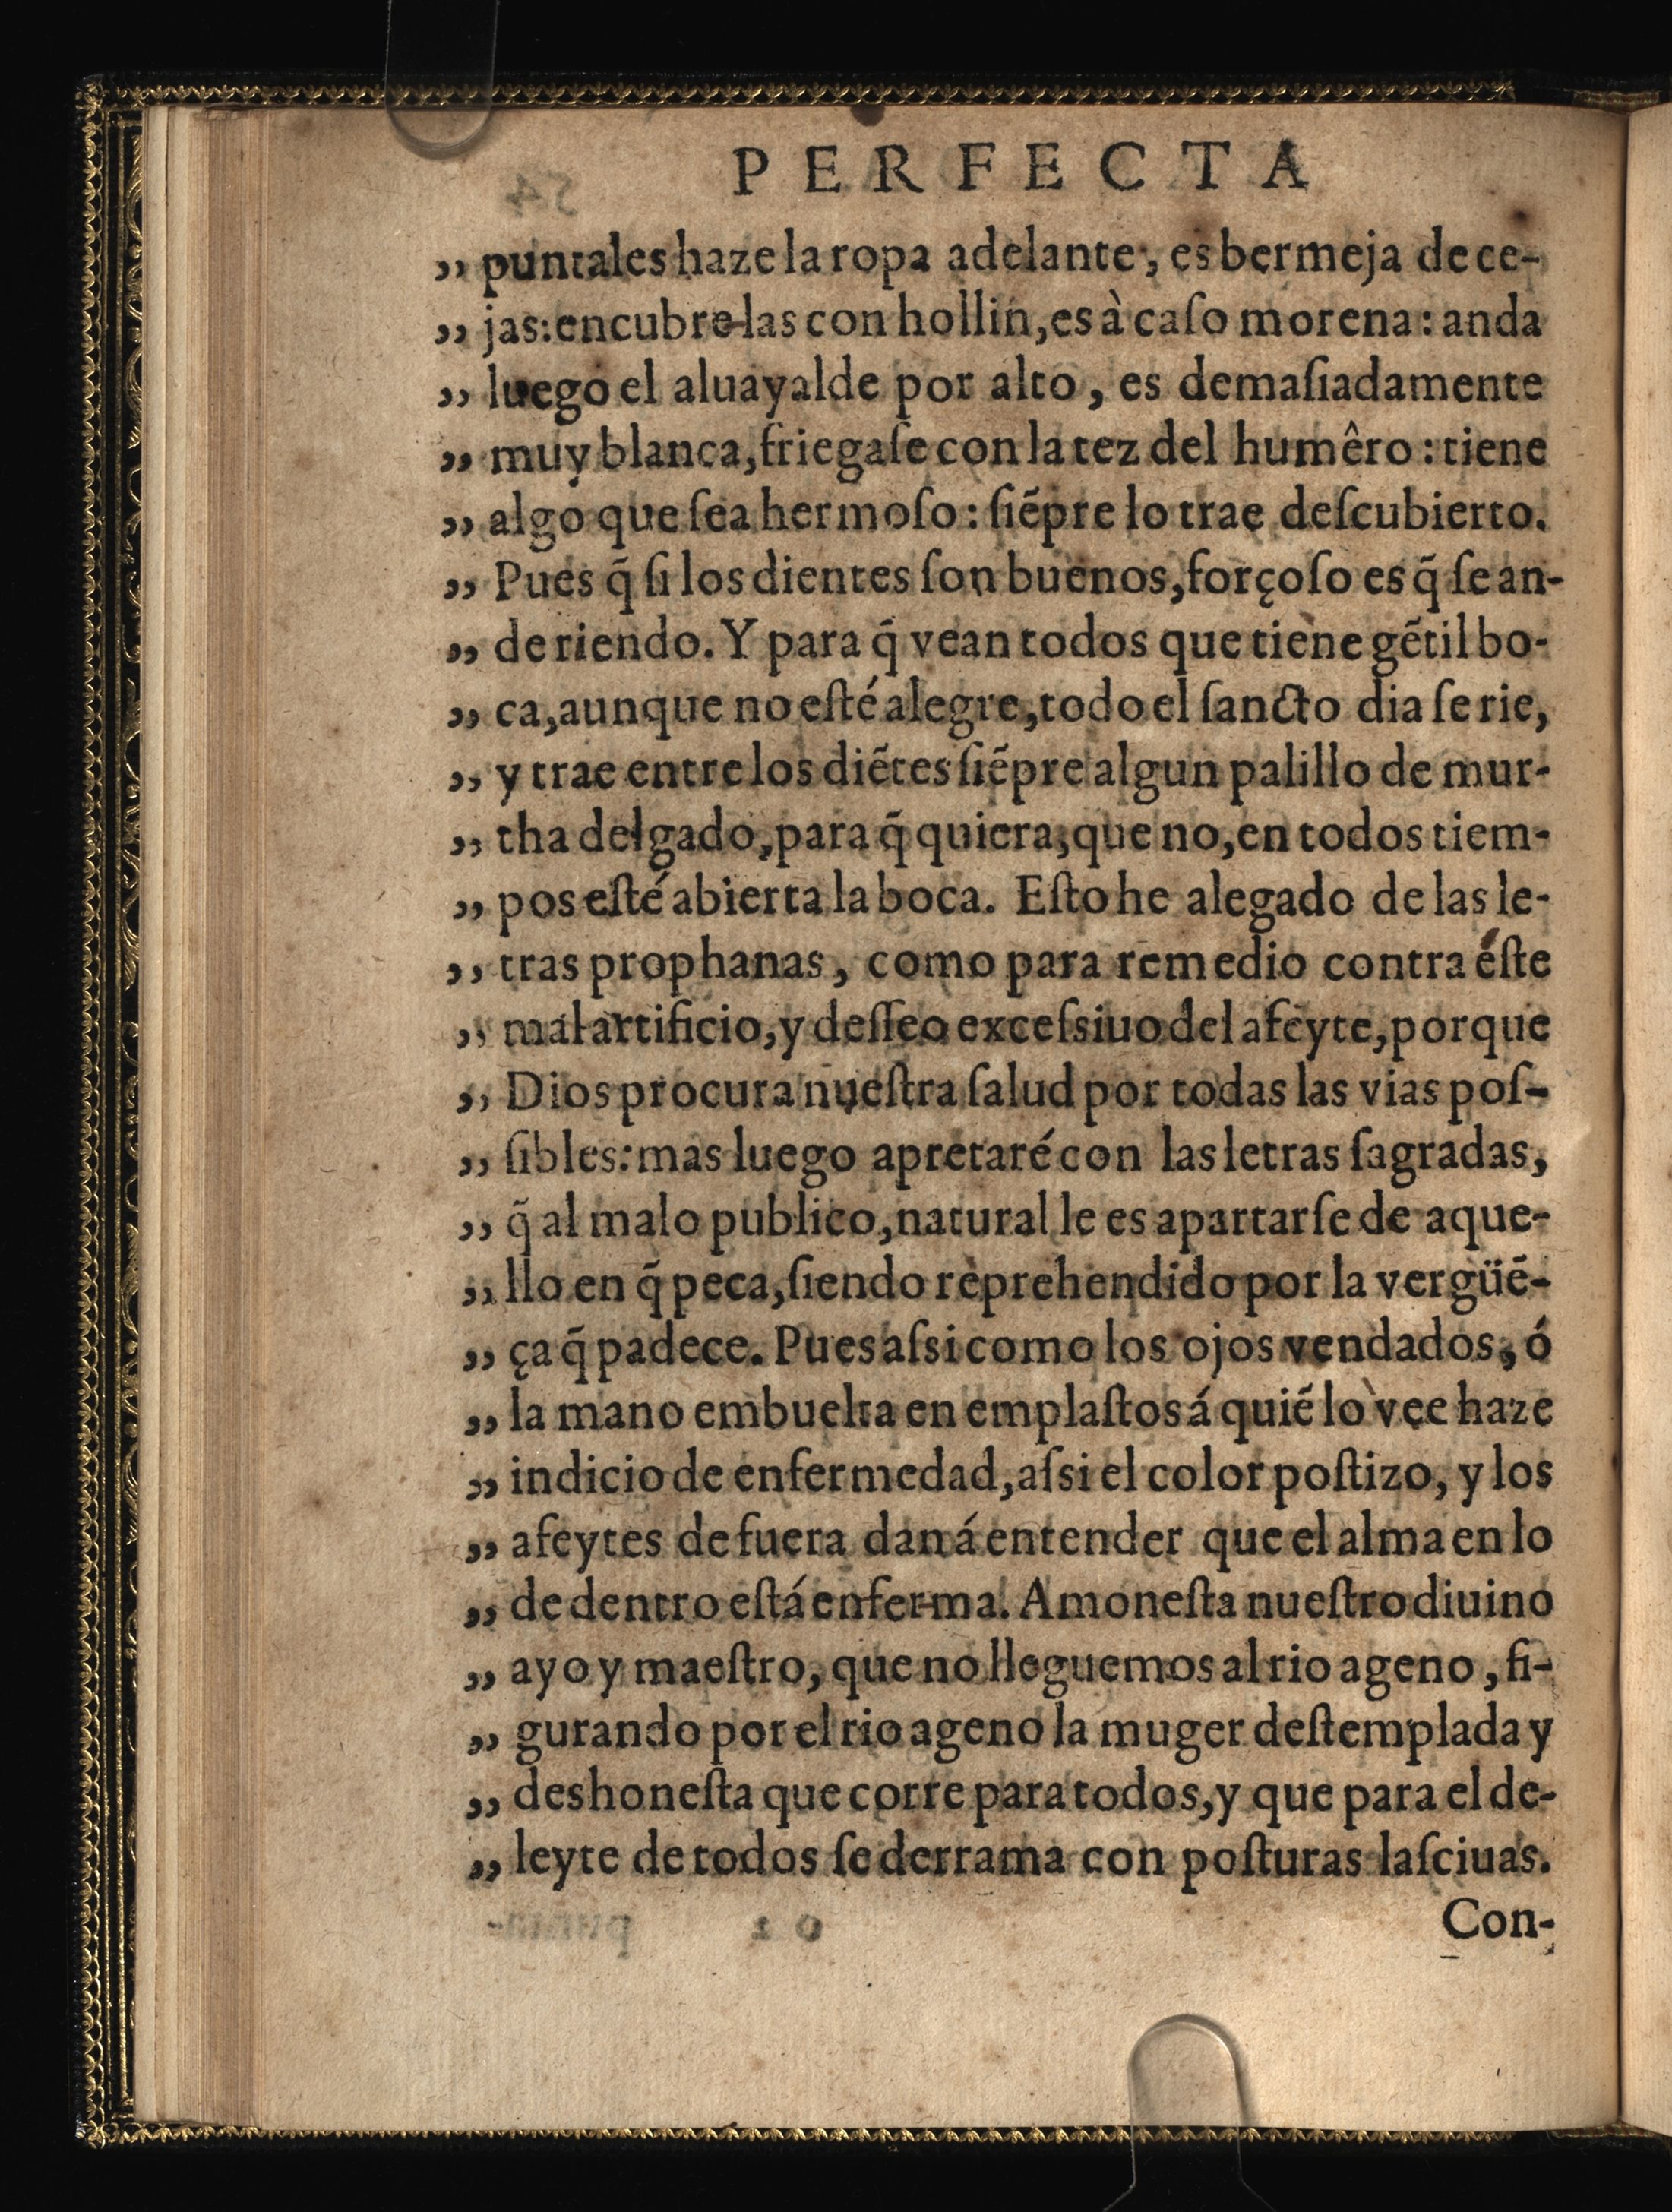 PERFECTA
„ puntales haze la ropa adelante, es bermeja de ce-
„ jas: encubre-las con hollin, es à caſo morena: anda
„ luego el aluayalde por alto, es demaſiadamente
„ muy blanca, friegaſe con la tez del humêro: tiene
„ algo que ſea hermoſo: ſiẽpre lo trae deſcubierto.
„ Pues q̃ ſi los dientes ſon buenos, forçoſo es q̃ ſe an-
„ de riendo. Y para q̃ vean todos que tiene gẽtil bo-
„ ca, aunque no eſté alegre, todo el ſancto dia ſe rie,
„ y trae entre los diẽtes ſiẽpre algun palillo de mur-
„ tha delgado, para q̃ quiera, que no, en todos tiem-
„ pos eſté abierta la boca. Eſto he alegado de las le-
„ tras prophanas, como para remedio contra éſte
„ mal artificio, y deſſeo exceſsiuo del afeyte, porque
„ Dios procura nueſtra ſalud por todas las vias poſ-
„ ſibles: mas luego apretaré con las letras ſagradas,
„ q̃ al malo publico, natural le es apartarſe de aque-
„ llo en q̃ peca, ſiendo reprehendido por la vergüẽ-
„ ça q̃ padece. Pues aſsi como los ojos vendados, ó
„ la mano embuelta en emplaſtos á quiẽ lo vee haze
„ indicio de enfermedad, aſsi el color poſtizo, y los
„ afeytes de fuera dan á entender que el alma en lo
„ de dentro eſtá enferma. Amoneſta nueſtro diuino
„ ayo y maeſtro, que no lleguemos al rio ageno, fi-
„ gurando por el rio ageno la muger deſtemplada y
„ deshoneſta que corre para todos, y que para el de-
„ leyte de todos ſe derrama con poſturas laſciuas.
Con-